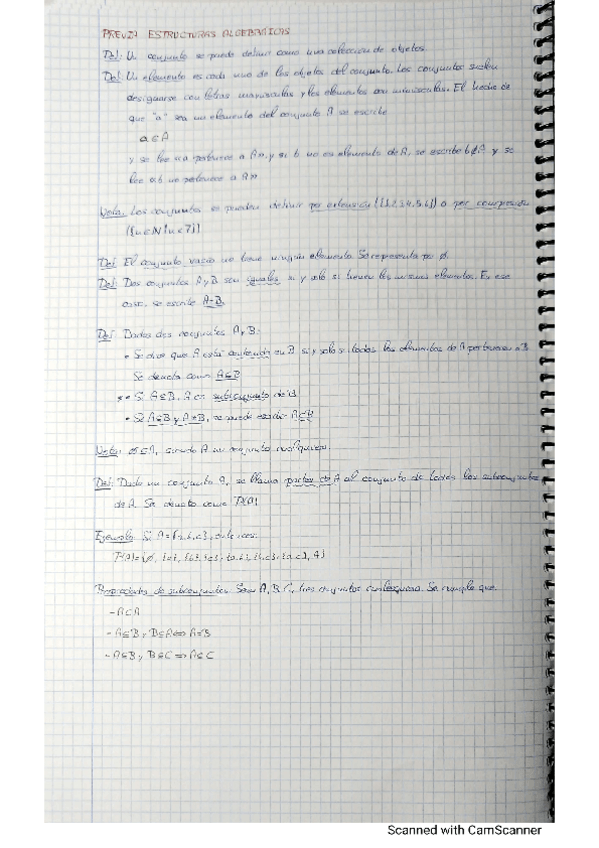 PREVIA ESTRUCTURAS ALGEBRAICAS
Def: Un conjunto se puede definir como una colección de objetos.
Def: Un elemento es cada uno de los objetos del conjunto. Los conjuntos suelen
designarse con letras mayúsculas y los elementos con minúsculas. El hecho de
que "a" sea un elemento del conjunto A se escribe
a ∈ A
y se lee «a pertenece a A», y si b no es elemento de A, se escribe b∉A y se
lee «b no pertenece a A»
Nota: Los conjuntos se pueden definir por extensión ({1,2,3,4,5,6}) o por comprensión
({n∈N | n<7})
Def: El conjunto vacío no tiene ningún elemento. Se representa por ∅.
Def: Dos conjuntos A y B son iguales si y solo si tienen los mismos elementos. En ese
caso, se escribe A=B.
Def: Dados dos conjuntos A, B:
• Se dice que A está contenido en B si y solo si todos los elementos de A pertenecen a B
Se denota como A⊆B
• Si A⊆B, A es subconjunto de B
• Si A⊆B y A≠B, se puede escribir A⊂B
Nota: ∅⊆A, siendo A un conjunto cualquiera.
Def: Dado un conjunto A, se llama partes de A al conjunto de todos los subconjuntos
de A. Se denota como P(A)
Ejemplo: Si A={a,b,c}, entonces:
P(A)={∅, {a}, {b}, {c}, {a,b}, {b,c}, {a,c}, A}
Propiedades de subconjuntos: Sean A, B, C, tres conjuntos cualesquiera. Se cumple que
- A⊂A
- A⊆B y B⊆A ⇔ A=B
- A⊆B y B⊆C ⇒ A⊆C
Scanned with CamScanner